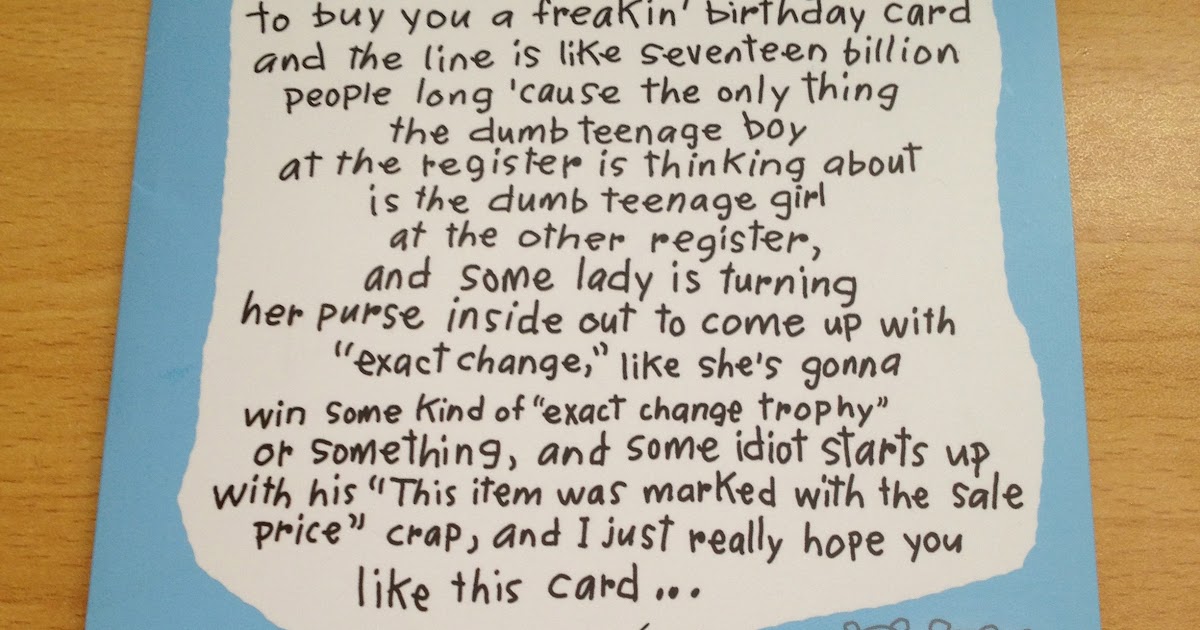 to buy you a freakin' birthday card
and the line is like seventeen billion
people long 'cause the only thing
the dumb teenage boy
at the register is thinking about
is the dumb teenage girl
at the other register,
and some lady is turning
her purse inside out to come up with
"exact change," like she's gonna
win some kind of "exact change trophy"
or something, and some idiot starts up
with his "This item was marked with the sale
price" crap, and I just really hope you
like this card...